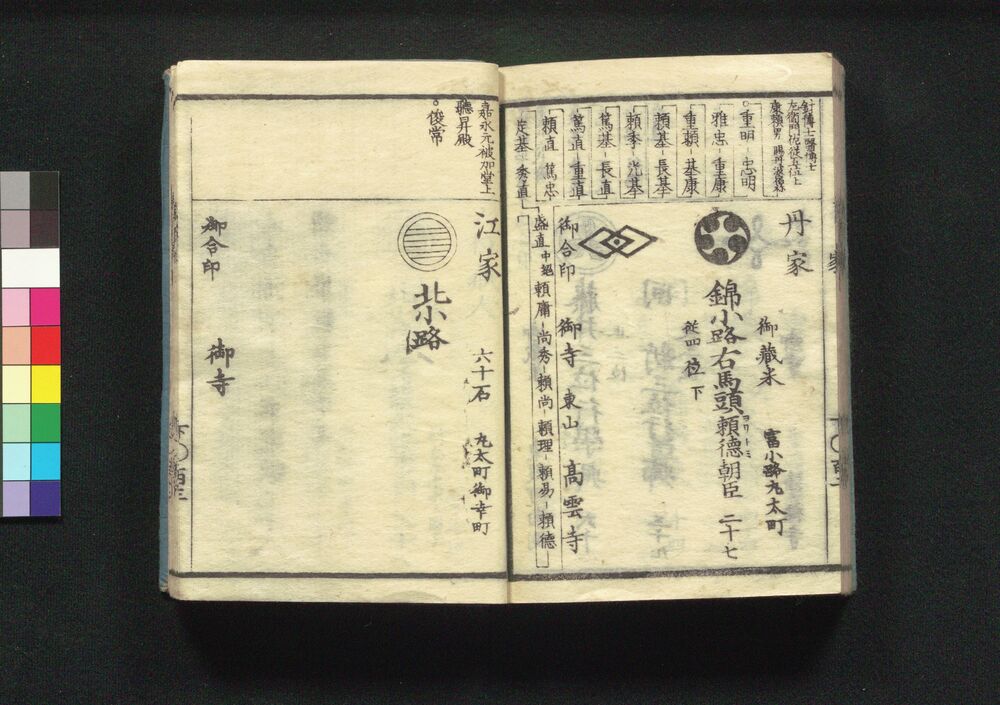 丹家
御蔵米
富小路丸太町
錦小路右馬頭頼徳朝臣 二十七
ヨリトミ
従四位下
御合印
御寺 東山 高雲寺
針博士醫博士
左衛門佐従五位上
康頼男
重明-忠明
雅忠-重康
重頼-基康
頼基-長基
頼季-光基
篤基-長直
篤直-重直
頼直 篤忠
定基 秀直
盛直 中絶 頼庸-尚秀-頼尚-頼理-頼易-頼徳
嘉永元被加堂上
聴昇殿
俊常
江家
六十石
丸太町御幸町
北小路
御合印
御寺